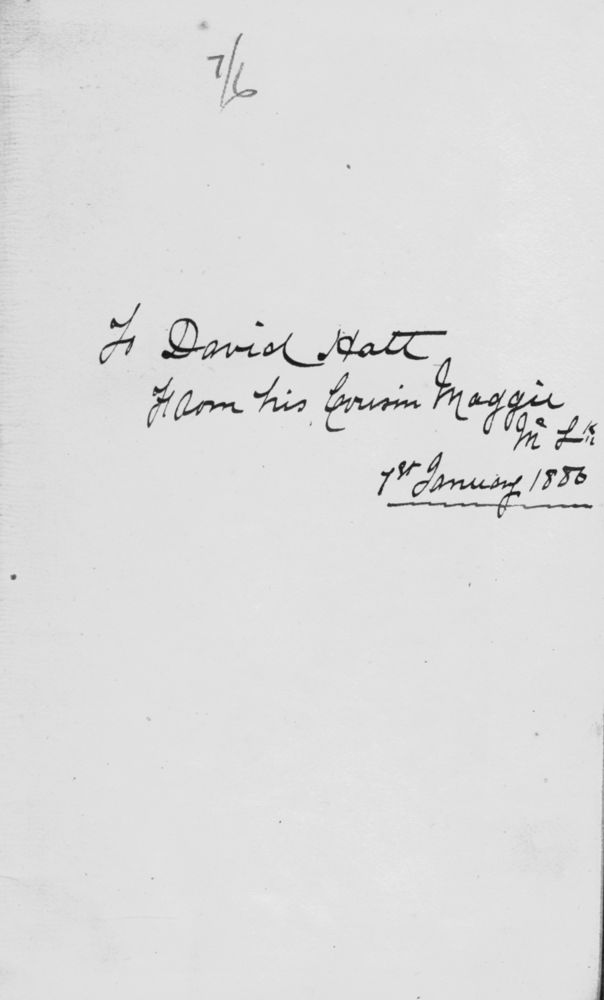 7/6
To David Hatt
From his Cousin Maggie
Mc
1st January 1886